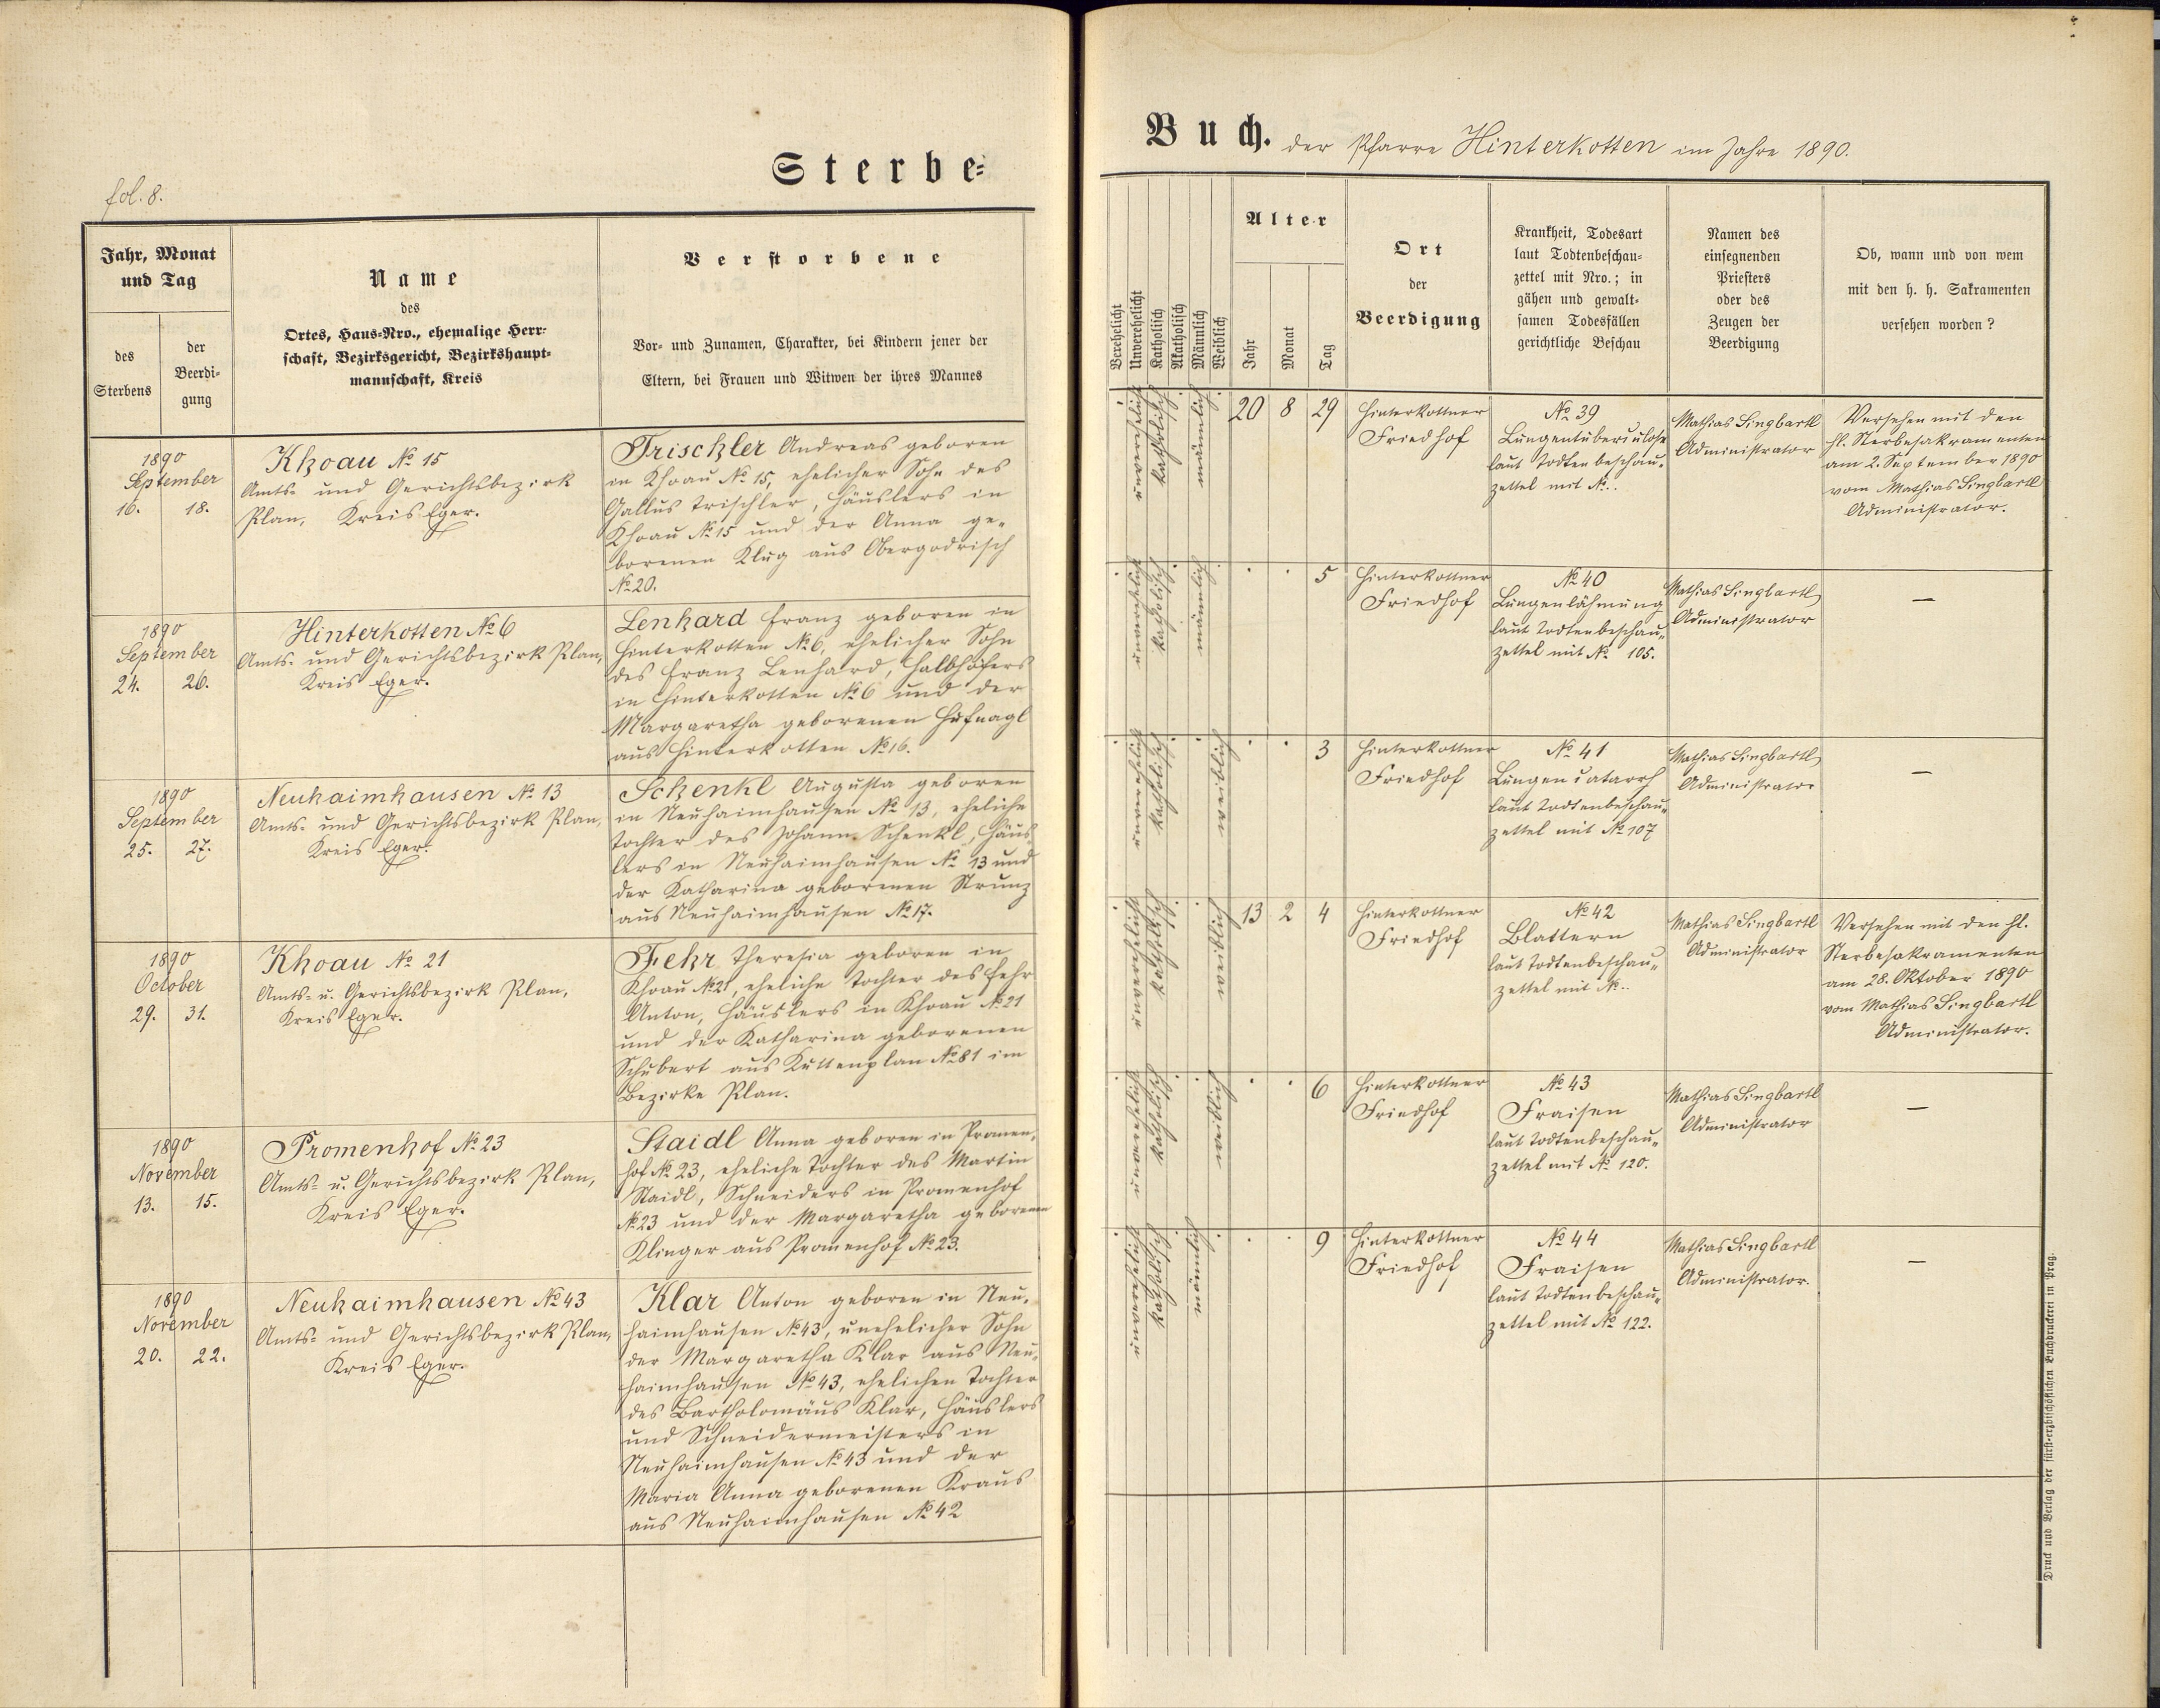 fol. 8.
Sterbe-
Jahr, Monat
und Tag
des
Sterbens
der
Beerdi-
gung
Name
des
Ortes, Haus-Nro., ehemalige Herr-
schaft, Bezirksgericht, Bezirkshaupt-
mannschaft, Kreis
Verstorbene
Vor- und Zunamen, Charakter, bei Kindern jener der
Eltern, bei Frauen und Witwen der ihres Mannes
1890
September
16. 18.
Khoau № 15
Amts- und Gerichtsbezirk
Plan, Kreis Eger.
Trischler Andreas geboren
in Khoau № 15, ehelicher Sohn des
Gallus Trischler, Häuslers in
Khoau № 15 und der Anna ge-
borenen Klug aus Obergodrisch
№ 20.
1890
September
24. 26.
Hinterkotten № 6
Amts- und Gerichtsbezirk Plan,
Kreis Eger.
Lenhard Franz geboren in
Hinterkotten № 6, ehelicher Sohn
des Franz Lenhard, Halbhöfers
in Hinterkotten № 6 und der
Margaretha geborenen Hufnagl
aus Hinterkotten № 16.
1890
September
25. 27.
Neuhaimhausen № 13
Amts- und Gerichtsbezirk Plan,
Kreis Eger.
Schenkl Augusta geboren
in Neuhaimhausen № 13, eheliche
Tochter des Johann Schenkl, Häus-
lers in Neuhaimhausen № 13 und
der Katharina geborenen Strunz
aus Neuhaimhausen № 17.
1890
October
29. 31.
Khoau № 21
Amts- u. Gerichtsbezirk Plan,
Kreis Eger.
Fehr Theresia geboren in
Khoau № 21, eheliche Tochter des Fehr
Anton, Häuslers in Khoau № 21
und der Katharina geborenen
Schubert aus Kuttenplan № 81 im
Bezirke Plan.
1890
November
13. 15.
Promenhof № 23
Amts- u. Gerichtsbezirk Plan,
Kreis Eger.
Staidl Anna geboren in Promen-
hof № 23, eheliche Tochter des Martin
Staidl, Schneiders in Promenhof
№ 23 und der Margaretha geborenen
Klinger aus Promenhof № 23.
1890
November
20. 22.
Neuhaimhausen № 43
Amts- und Gerichtsbezirk Plan,
Kreis Eger.
Klar Anton geboren in Neu-
haimhausen № 43, unehelicher Sohn
der Margaretha Klar aus Neu-
haimhausen № 43, ehelichen Tochter
des Bartholomäus Klar, Häuslers
und Schneidermeisters in
Neuhaimhausen № 43 und der
Maria Anna geborenen Kraus
aus Neuhaimhausen № 42
Buch. der Pfarre Hinterkotten im Jahre 1890.
Verehelicht
Unverehelicht
Katholisch
Akatholisch
Männlich
Weiblich
Alter
Jahr
Monat
Tag
Ort
der
Beerdigung
Krankheit, Todesart
laut Todtenbeschau-
zettel mit Nro.; in
gähen und gewalt-
samen Todesfällen
gerichtliche Beschau
Namen des
einsegnenden
Priesters
oder des
Zeugen der
Beerdigung
Ob, wann und von wem
mit den h. h. Sakramenten
versehen worden?
unverehelicht
katholisch
männlich
20 8 29
Hinterkottner
Friedhof
№ 39
Lungentuberculose
laut Todtenbeschau-
zettel mit №..
Mathias Singbartl
Administrator
Versehen mit den
hl. Sterbesakramenten
am 2. September 1890
vom Mathias Singbartl
Administrator.
unverehelicht
katholisch
männlich
5
Hinterkottner
Friedhof
№ 40
Lungenlähmung
laut Todtenbeschau-
zettel mit № 105.
Mathias Singbartl
Administrator
—
unverehelicht
katholisch
weiblich
3
Hinterkottner
Friedhof
№ 41
Lungencatarrh
laut Todtenbeschau-
zettel mit № 107
Mathias Singbartl
Administrator
—
unverehelicht
katholisch
weiblich
13 2 4
Hinterkottner
Friedhof
№ 42
Blattern
laut Todtenbeschau-
zettel mit №..
Mathias Singbartl
Administrator
Versehen mit den hl.
Sterbesakramenten
am 28. Oktober 1890
vom Mathias Singbartl
Administrator.
unverehelicht
katholisch
weiblich
6
Hinterkottner
Friedhof
№ 43
Fraisen
laut Todtenbeschau-
zettel mit № 120.
Mathias Singbartl
Administrator
—
unverehelicht
katholisch
männlich
9
Hinterkottner
Friedhof
№ 44
Fraisen
laut Todtenbeschau-
zettel mit № 122.
Mathias Singbartl
Administrator.
—
Druck und Verlag der fürst-erzbischöflichen Buchdruckerei in Prag.